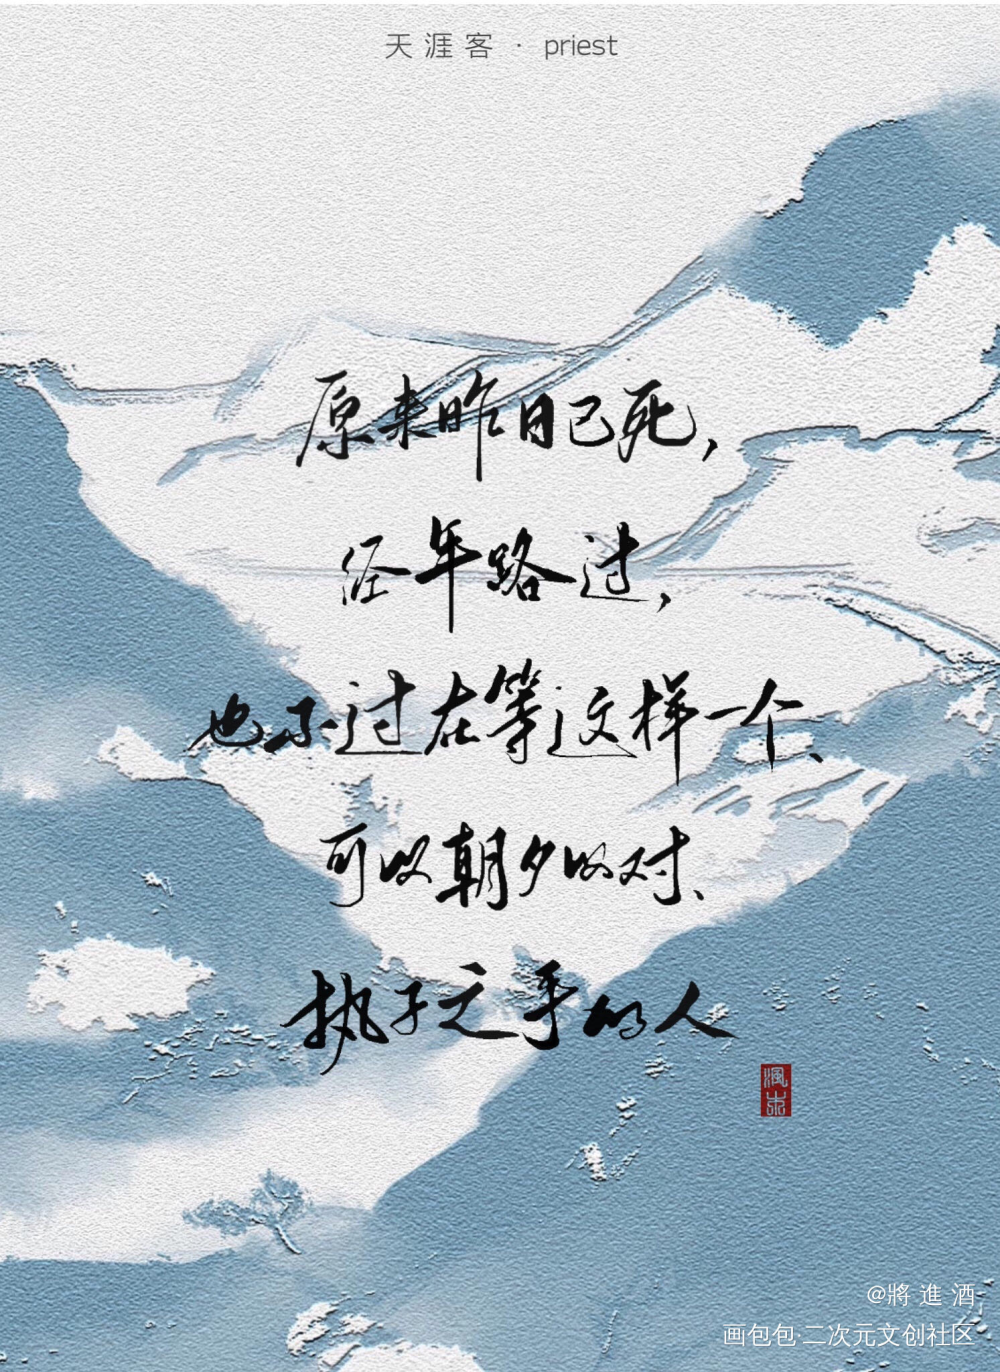 天涯客 · priest
原来昨日已死，
经年路过，
也不过在等这样一个、
可以朝夕以对、
执子之手的人
@將進酒
画包包·二次元文创社区